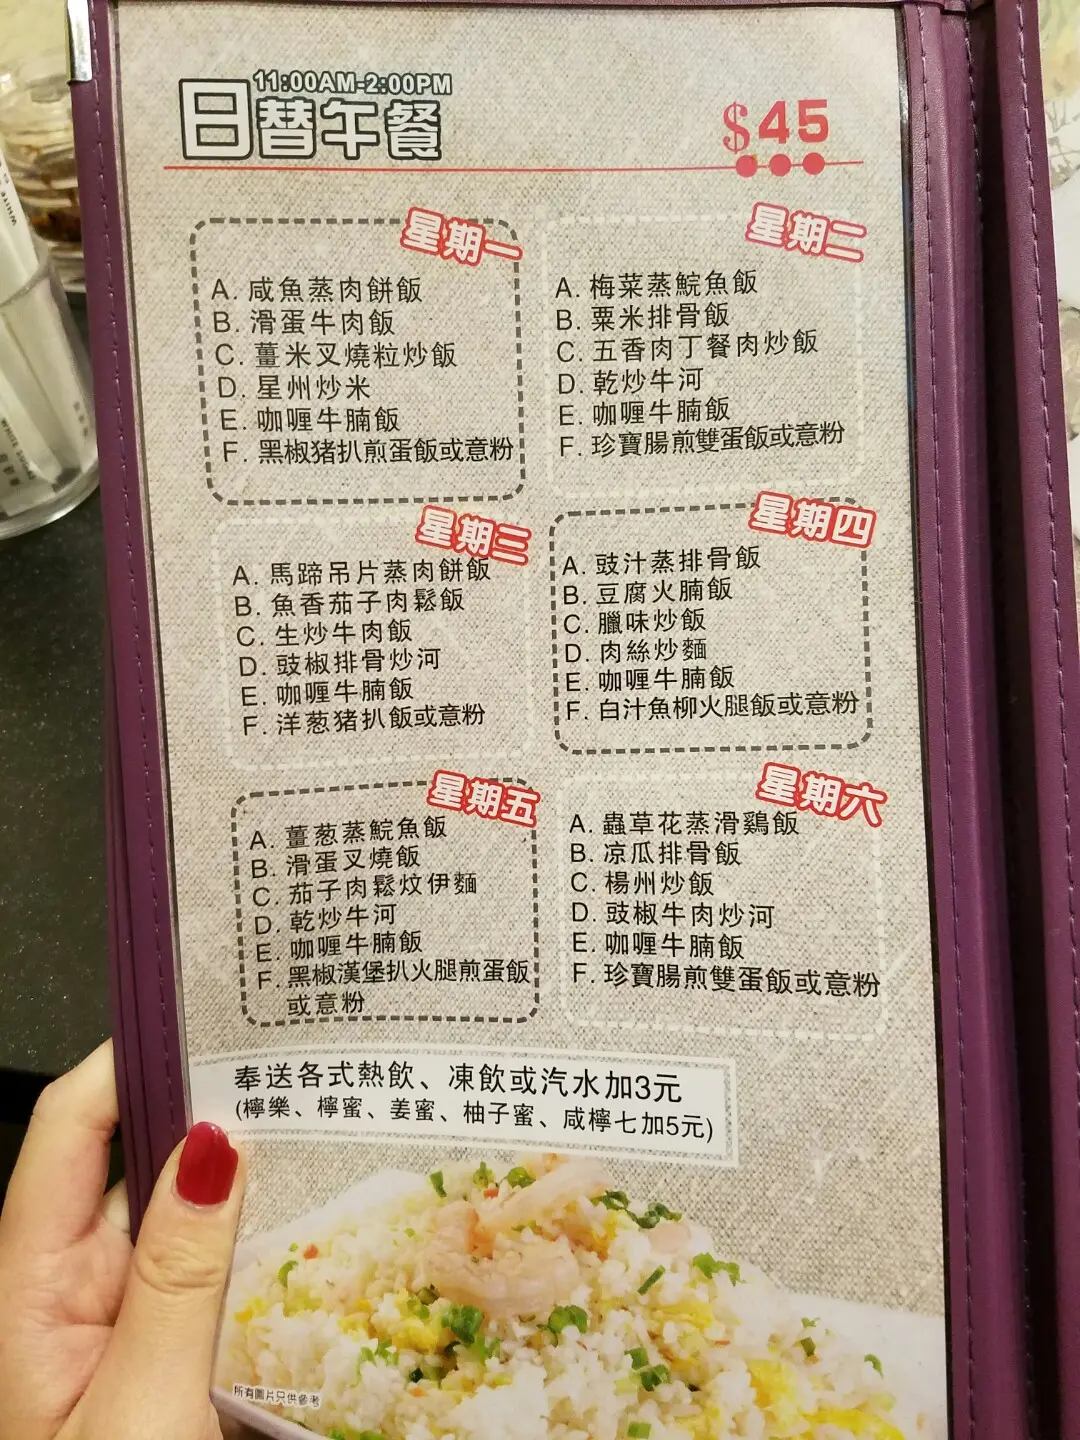 11:00AM-2:00PM
日替午餐
$45
星期一
A. 咸魚蒸肉餅飯
B. 滑蛋牛肉飯
C. 薑米叉燒粒炒飯
D. 星州炒米
E. 咖喱牛腩飯
F. 黑椒猪扒煎蛋飯或意粉
星期二
A. 梅菜蒸鯇魚飯
B. 粟米排骨飯
C. 五香肉丁餐肉炒飯
D. 乾炒牛河
E. 咖喱牛腩飯
F. 珍寶腸煎雙蛋飯或意粉
星期三
A. 馬蹄吊片蒸肉餅飯
B. 魚香茄子肉鬆飯
C. 生炒牛肉飯
D. 豉椒排骨炒河
E. 咖喱牛腩飯
F. 洋葱猪扒飯或意粉
星期四
A. 豉汁蒸排骨飯
B. 豆腐火腩飯
C. 臘味炒飯
D. 肉絲炒麵
E. 咖喱牛腩飯
F. 白汁魚柳火腿飯或意粉
星期五
A. 薑葱蒸鯇魚飯
B. 滑蛋叉燒飯
C. 茄子肉鬆炆伊麵
D. 乾炒牛河
E. 咖喱牛腩飯
F. 黑椒漢堡扒火腿煎蛋飯
或意粉
星期六
A. 蟲草花蒸滑鷄飯
B. 凉瓜排骨飯
C. 楊州炒飯
D. 豉椒牛肉炒河
E. 咖喱牛腩飯
F. 珍寶腸煎雙蛋飯或意粉
奉送各式熱飲、凍飲或汽水加3元
(檸樂、檸蜜、姜蜜、柚子蜜、咸檸七加5元)
所有圖片只供參考